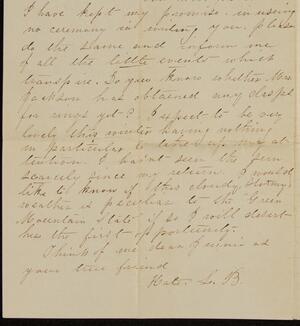 I have kept my promise in using
no ceremony in writing you. please
do the same and inform me
of all the little events which
transpire. Do you know whether Mrs.
Jackson has obtained any drops
for rings yet? I expect to be very
lonely this winter having nothing
in particular to take up my at-
tention. I hav'nt seen the sun
scarcely since my return. I would
like to know if this cloudy, stormy
weather is peculiar to the Green
Mountain State if so I will desert
her the first opportunity.
Think of me dear as
your true friend
Kate. L. B.